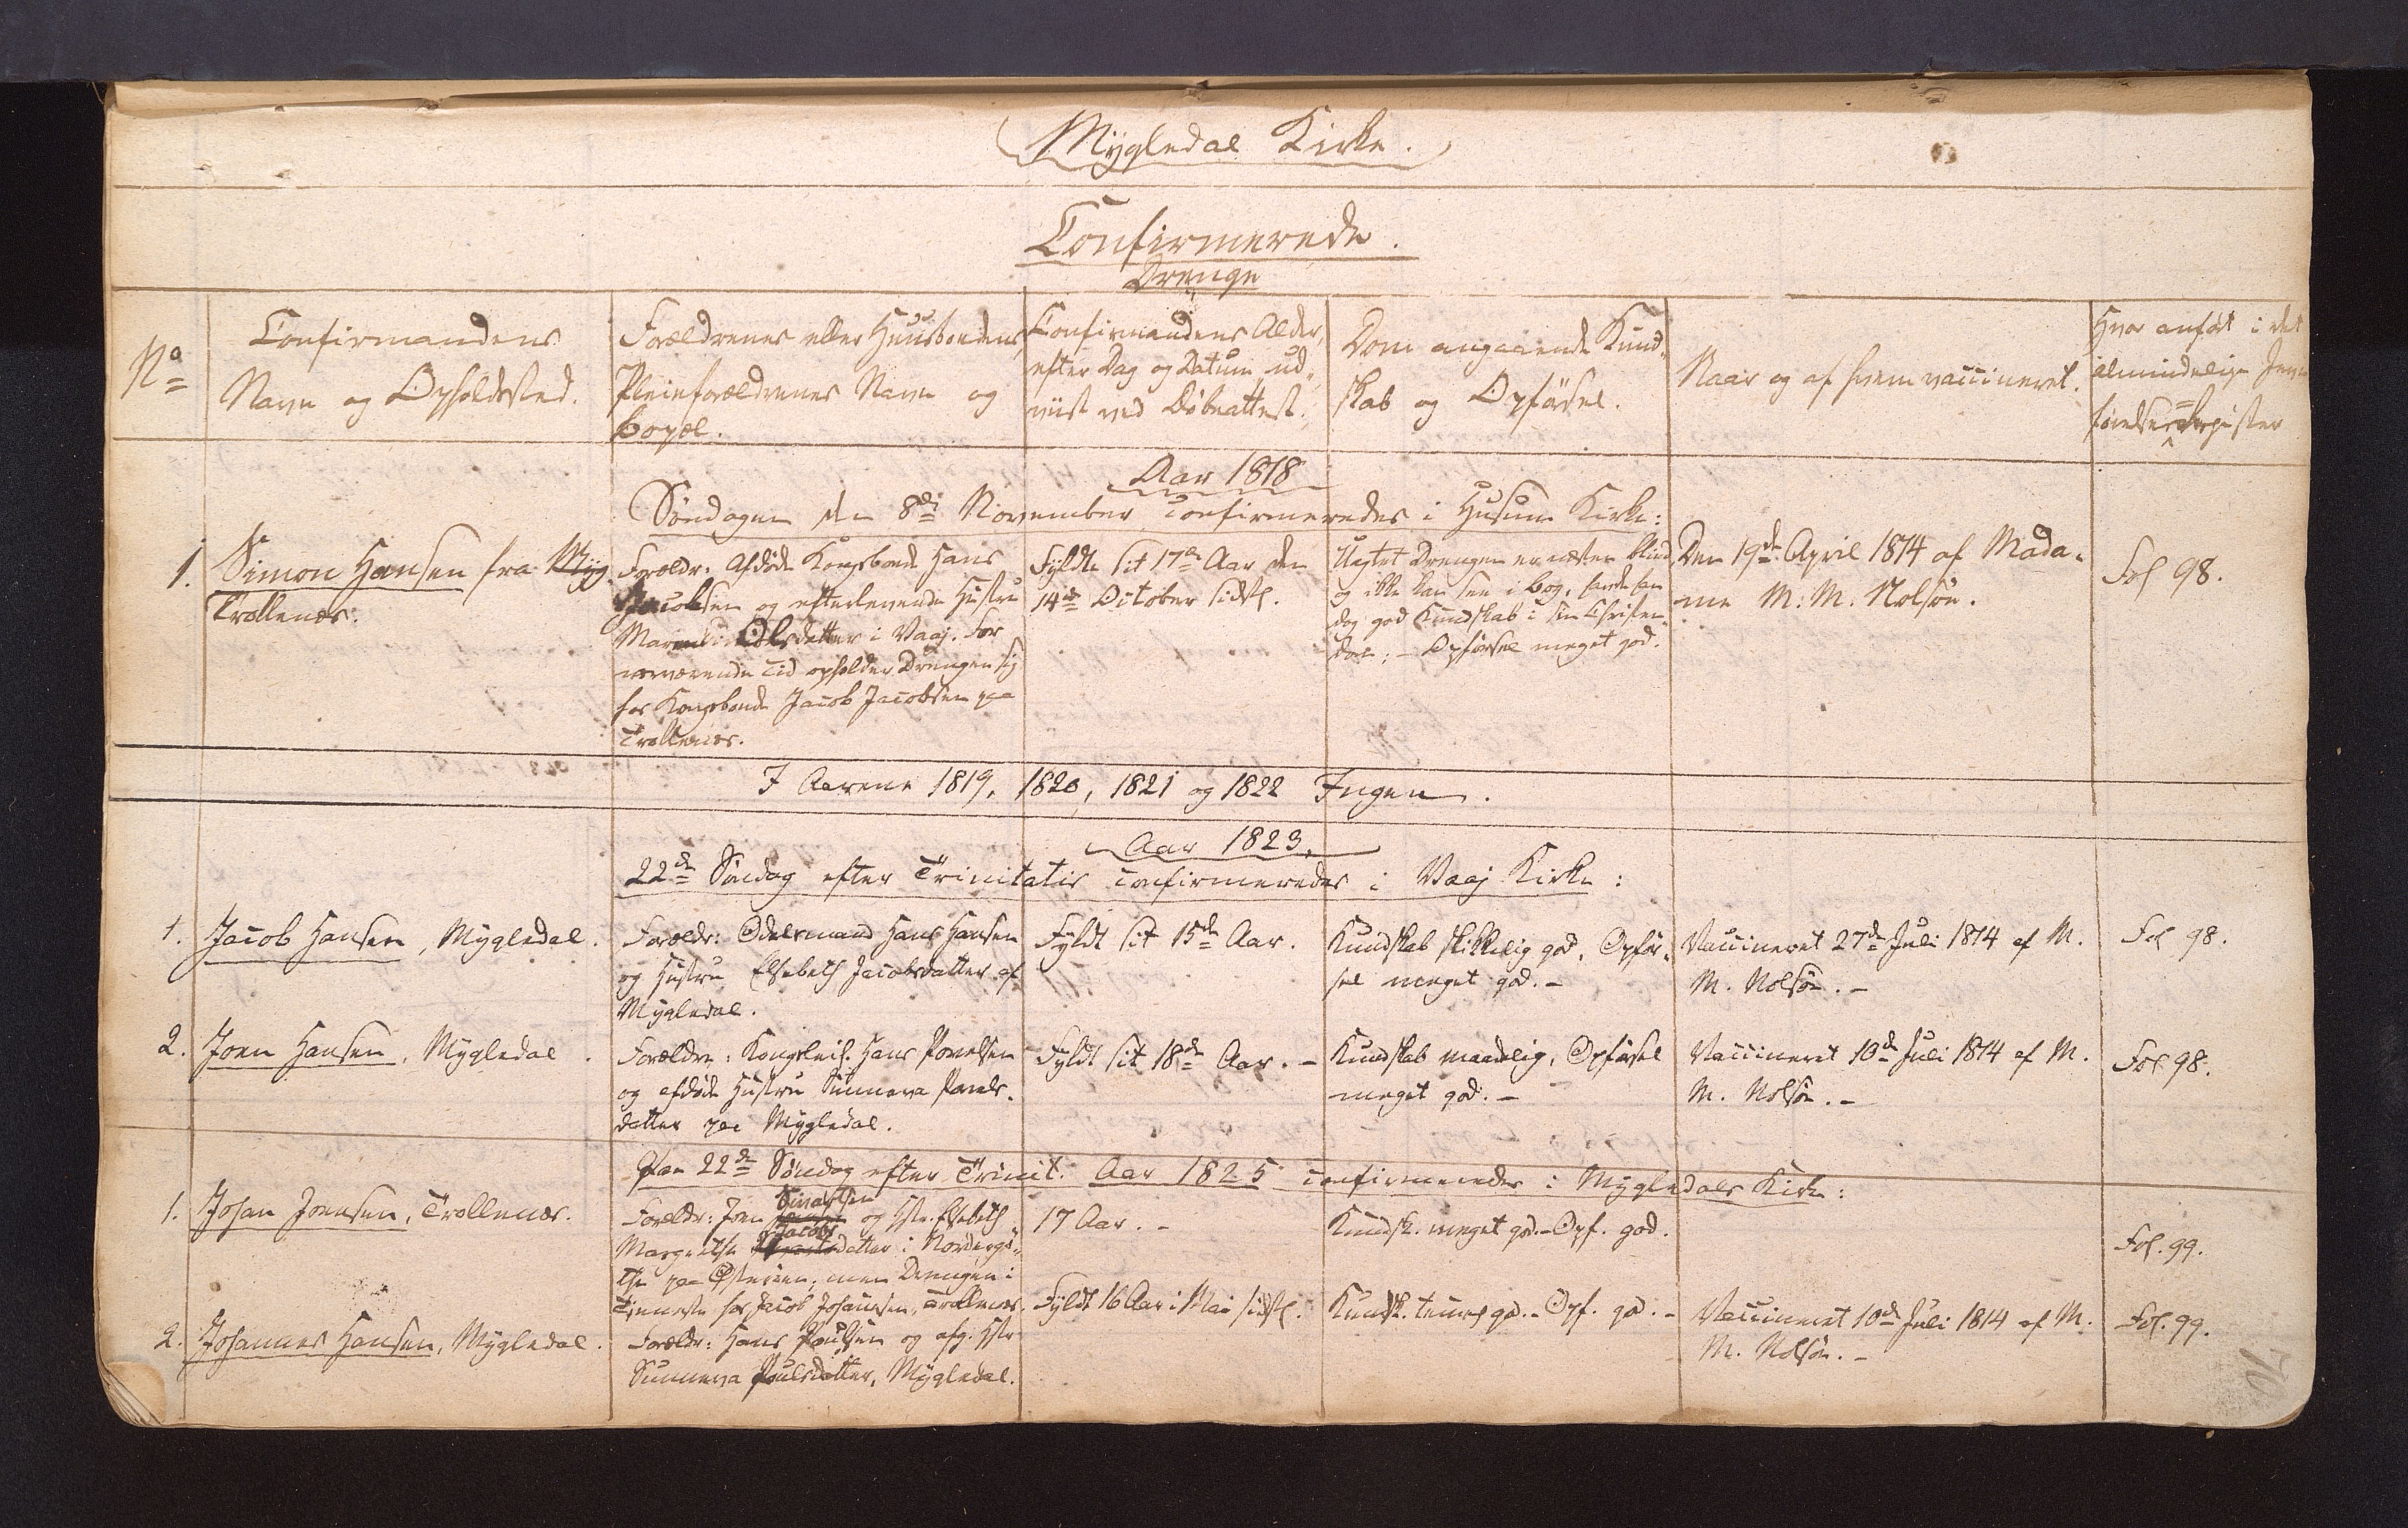 Mÿgledal Kirke.
Confirmerede.
Drenge
No
Confirmandens
Navn og Opholdssted.
Forældrenes eller Huusbondens,
Pleieforældrenes Navn og
Bopæl.
Confirmandens Alder,
efter Dag og Datum ud-
viist ved Döbeattest.
Dom angaaende Kund-
skab og Opförsel.
Naar og af hvem vaccineret.
Hvor anfört i det
almindelige Jevn-
förelses-Register
Aar 1818
Söndagen den 8de November confirmeredes i Husum Kirke:
1.
Simon Hansen fra Myg
Trollenæs.
Forældr: Afdöde Kongsbonde Hans
Jacobsen og efterlevende Hustru
Olsdatter i Vaaj. For
nærværende Tid opholder Drengen sig
hos Kongsbonde Jacob Jacobsen paa
Trollenæs.
Fyldte sit 17de Aar den
14de October sidstl.
Uagtet Drengen er næsten blind
og ikke kan see i Bog, havde han
dog god Kundskab i sin Christen-
dom; - Opförsel meget god.
Den 19de April 1814 af Mada-
me M. M. Nolsöe.
Fol 98.
I Aarene 1819, 1820, 1821 og 1822 Ingen.
Aar 1823.
22de Söndag efter Trinitatis confirmeredes i Vaaj Kirke:
1.
Jacob Hansen, Mÿgledal.
Forældr: Odelsmand Hans Hansen
og Hustru Elsebeth Jacobsdatter af
Mÿgledal.
Fyldt sit 15de Aar.
Kundskab skikkelig god, Opför-
sel meget god. -
Vaccineret 27de Juli 1814 af M.
M. Nolsöe. -
Fol 98.
2.
Joen Hansen, Mÿgledal.
Forældre: Kongsleil. Hans Povelsen
og afdöde Hustru Sunneva Povels-
datter paa Mÿgledal.
Fyldt sit 18de Aar. -
Kundskab maadelig, Opförsel
meget god. -
Vaccineret 10de Juli 1814 af M.
M. Nolsöe. -
Fol 98.
Paa 22de Söndag efter Trinit. Aar 1825 confirmeredes i Mÿgledals Kirke:
1.
Johan Joensen, Trollenæs.
Forældr: Joen og Hstr. Elsebeth
Margrethe Jacobsdatter i Nordergö-
the paa Österöen, men Drengen i
Tjeneste hos Jacob Johannesen, Trollenæs.
17 Aar. -
Kundsk. meget god. - Opf. god.
Fol. 99.
2.
Johannes Hansen, Mÿgledal.
Forældr: Hans Poulsen og afg. Hstr
Sunneva Poulsdatter, Mÿgledal.
Fyldt 16 Aar i Mai sidstl.
Kundsk. temml. god. - Opf. god. -
Vaccineret 10de Juli 1814 af M.
M. Nolsöe. -
Fol. 99.
70